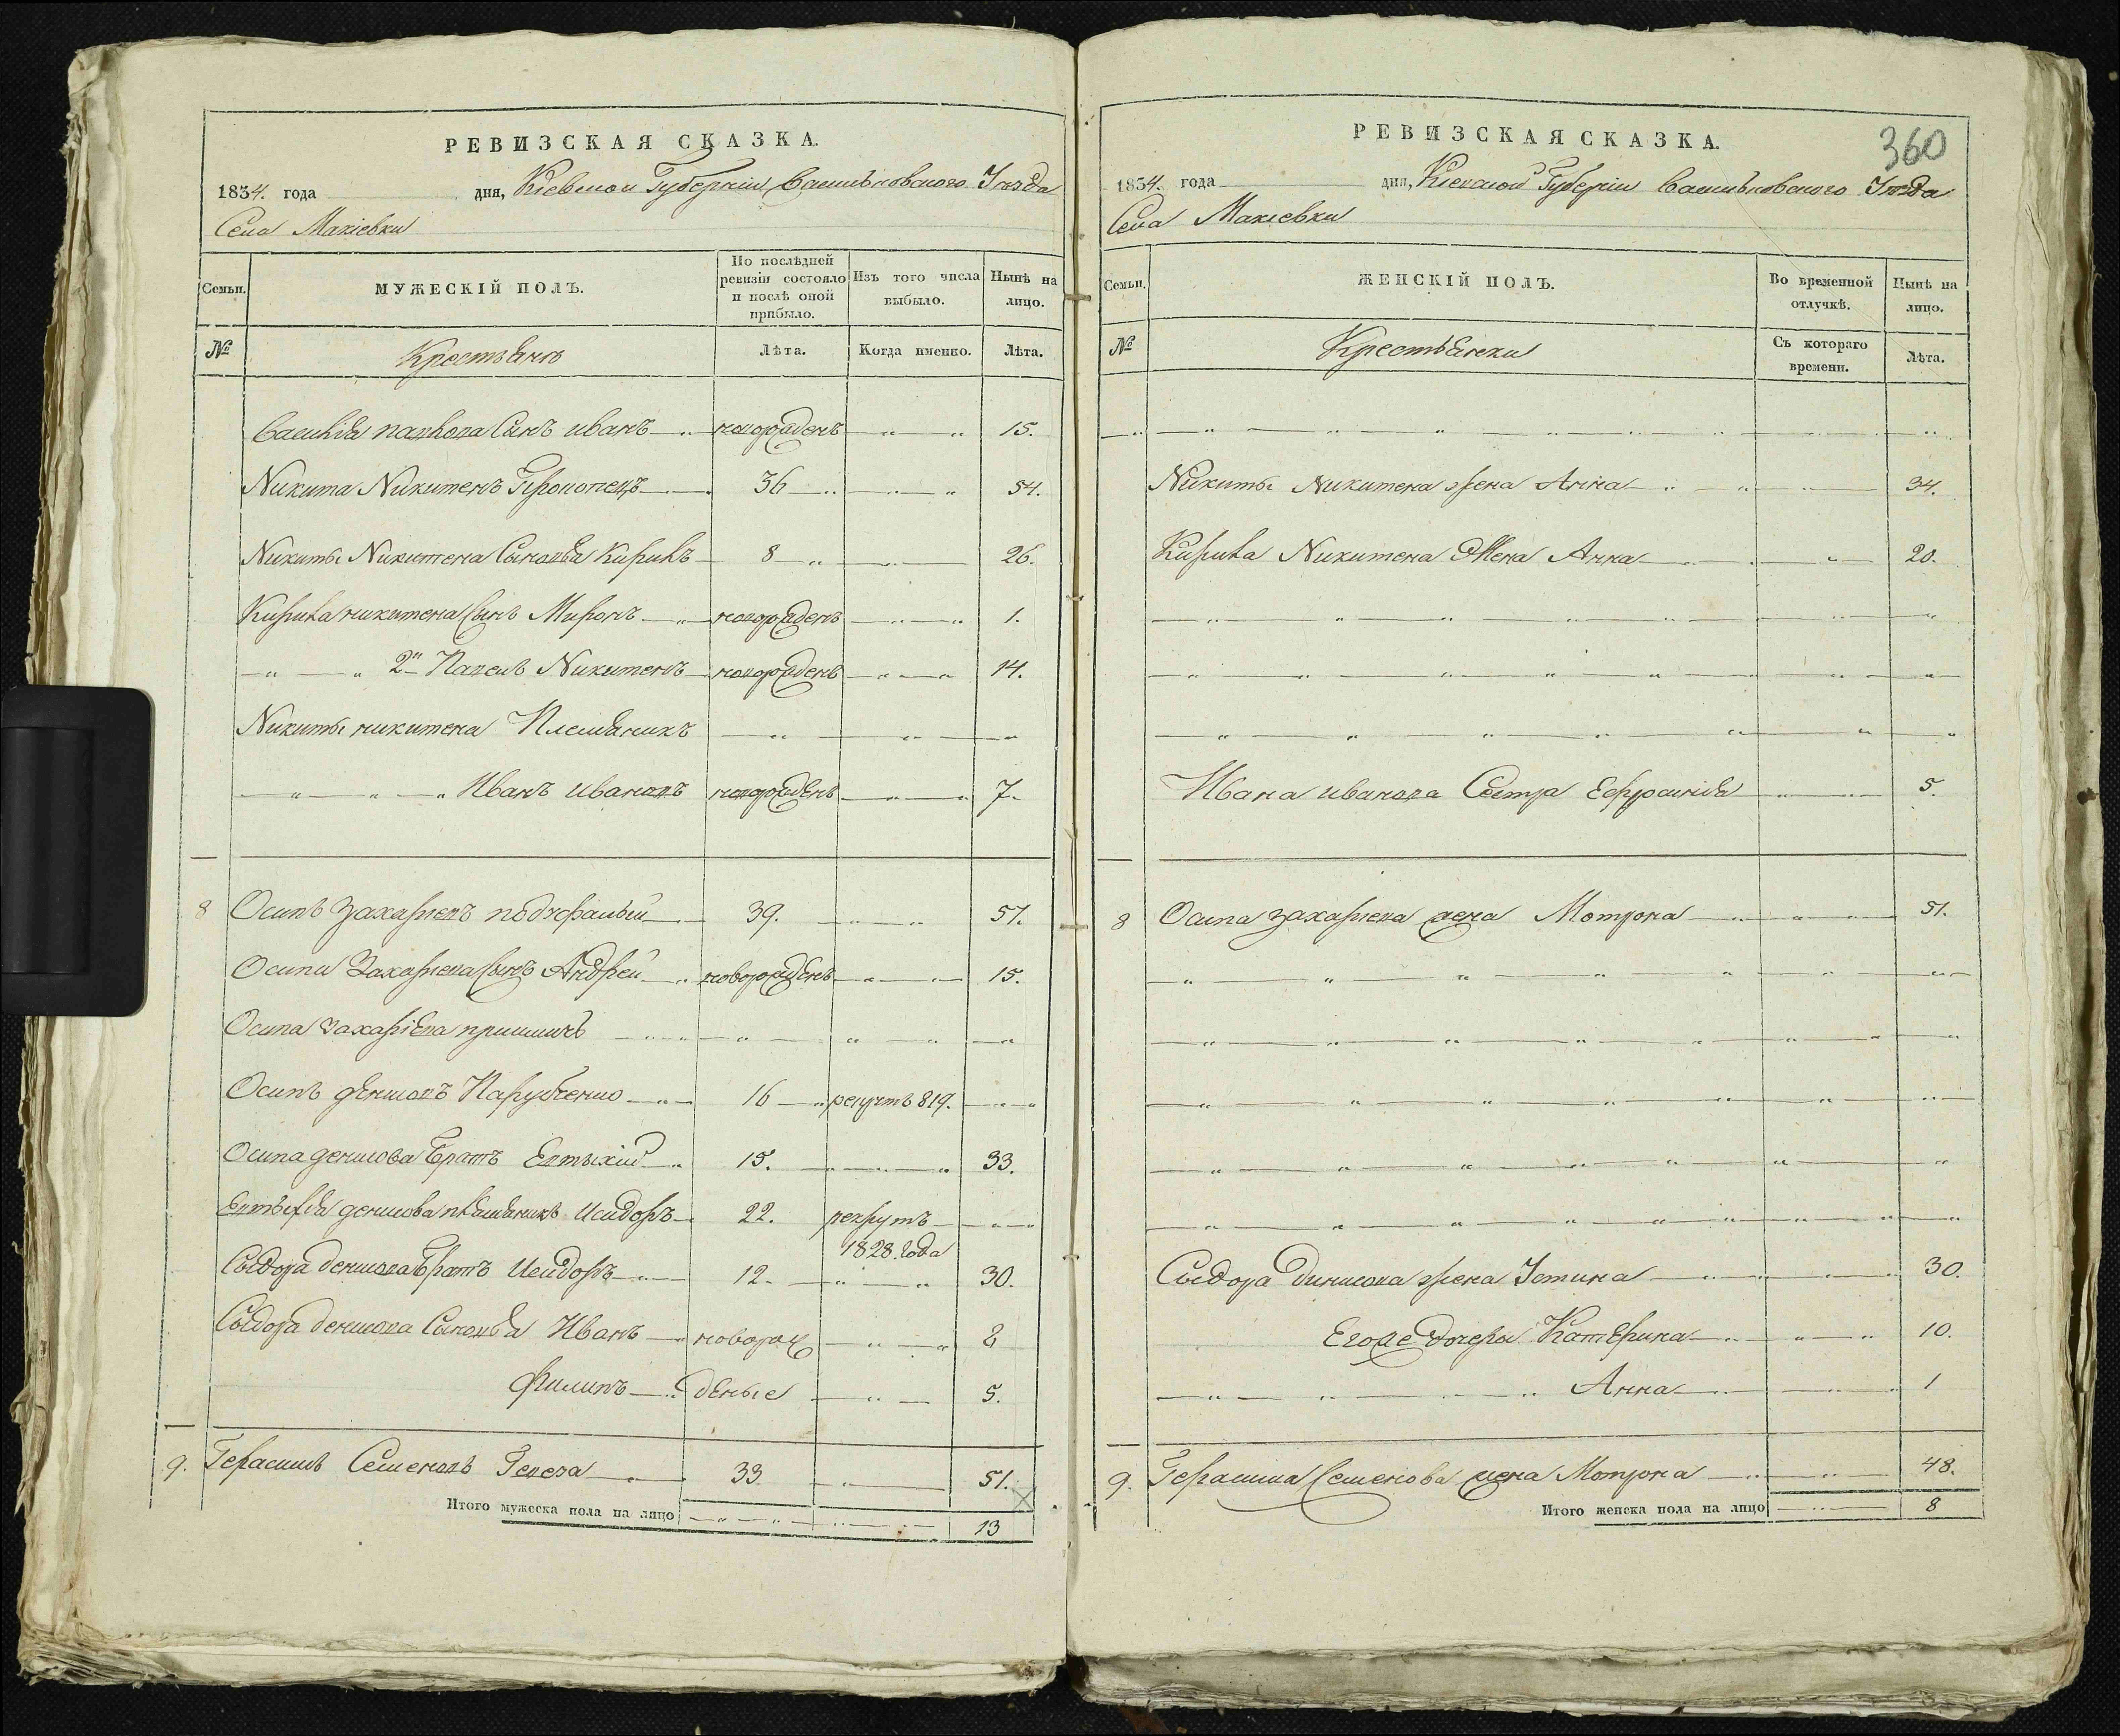 РЕВИЗСКАЯ СКАЗКА.
1834. года дня, Кіевской Губерніи Васильковскаго Уѣзда
Села Макіевки
Семьи. МУЖЕСКІЙ ПОЛЪ. По послѣдней ревизіи состояло и послѣ оной прибыло. Изъ того числа выбыло. Нынѣ на лицо.
№ Крестьянъ Лѣта. Когда именно. Лѣта.
Василія Сынъ иванъ новорожденъ 15.
Никита Никитенъ 36 54.
Никиты Никитена Сыновья Кирилъ 8 26.
Кирила никитена Сынъ Миронъ новорожденъ 1.
2й Павелъ Никитенъ новорожденъ 14.
Никиты никитена Племяникъ
Иванъ ивановъ новорожденъ 7.
8 Осипъ захариевъ 39. 57.
Осипа Захариева Сынъ Андрей новорожденъ 15.
Осипа захаріева приимичъ
Осипъ денисовъ Парубченко 16 рекрутъ 819.
Осипа денисова Братъ Евтихій 15. 33.
Евтыхія денисова племяникъ Исидоръ 22. рекрутъ 1828. года
Сысдора денисова Братъ Исидоръ 12. 30.
Сысдора денисова Сыновья Иванъ новорож 8
Филипъ деные 5.
9. Герасимъ Семеновъ 33. 51.
Итого мужеска пола на лицо 13
РЕВИЗСКАЯ СКАЗКА.
360
1834. года дня, Кіевской Губерніи Васильковскаго Уѣзда
Села Макіевки
Семьи. ЖЕНСКІЙ ПОЛЪ. Во временной отлучкѣ. Нынѣ на лицо.
№ Крестьянски Съ котораго времени. Лѣта.
Никиты Никитена жена Анна 34.
Кирила Никитена Жена Анна 20.
Ивана иванова Сестра Ефросинія 5.
8 Осипа захариева жена Мотрона 51.
Сысдора динисова жена Устина 30.
Егоже дочеры Катерина 10.
Анна 1
9. Герасима Семенова жена Мотрона 48.
Итого женска пола на лицо 8